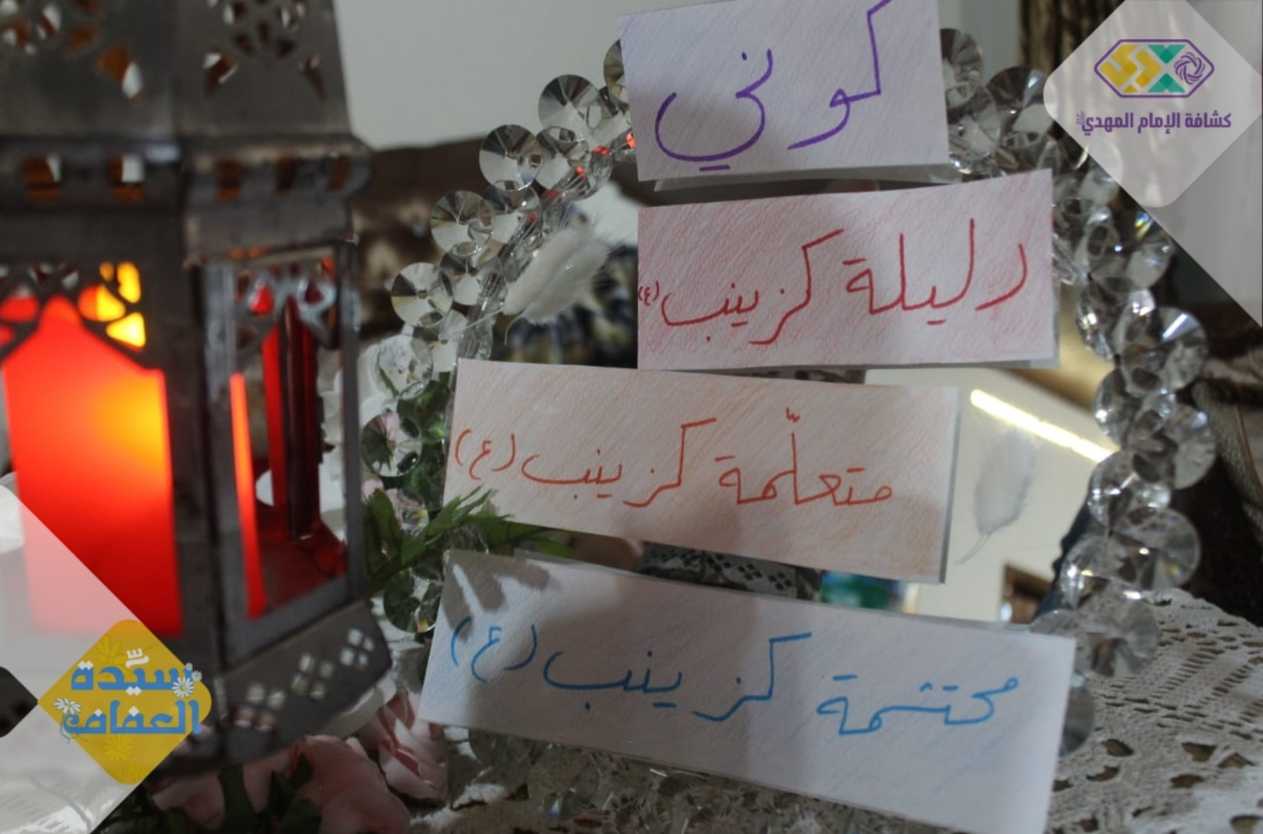 كوني
دليلة كزينب (ع)
متعلّمة كزينب (ع)
محتشمة كزينب (ع)
كشافة الإمام المهدي
سيّدة
العفاف